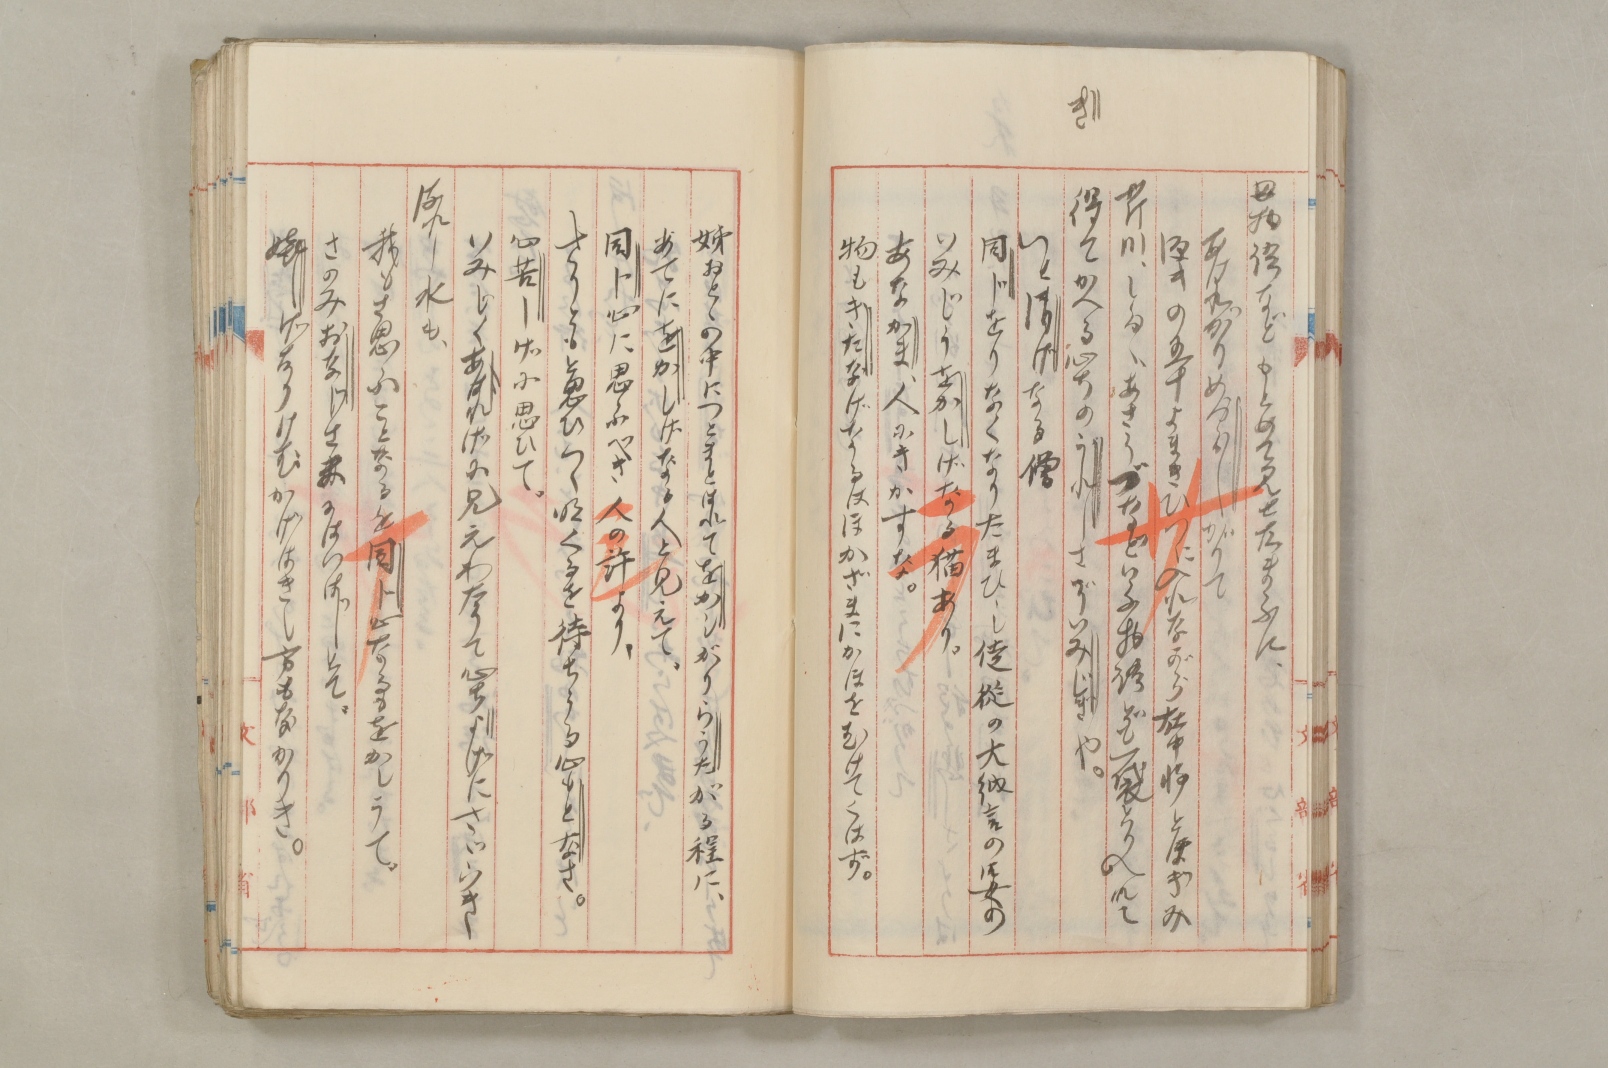 ぎ
母物語などもとめて見せたまふに、
あはれがりめづらしがりて
源氏の五十よまきひつに入れながら在中将とほぎみ
芹川、しらゝ、あさうづなどいふ物語ども一袋とり入れて
得てかへる心ちのうれしさぞいみじきや。
いと清げなる僧
同じをりなくなりたまひし侍従の大納言の女の
いみじうをかしげなる猫あり。
あなかま、人にきかすな。
物もきたなげなるはほかざまにかほをむけてくはず。
姉おとゝの中につとまとはれてをかしがりらうたがる程に、
あてにをかしげなる人と見えて、
同じ心に思ふべき人の許より、
さりともと思ひつゝ明くるを待ちつる心もとなさ。
心苦しげに思ひて。
いみじくあはれげに見えわたりて心ちよげにさゝらきし
流れし水も、
我もさ思ふことなるを同じ心なるもをかしうて、
さのみおなじさまにはいはじとて、
嬉しげなりけむかげはきし方もなかりき。
文部省